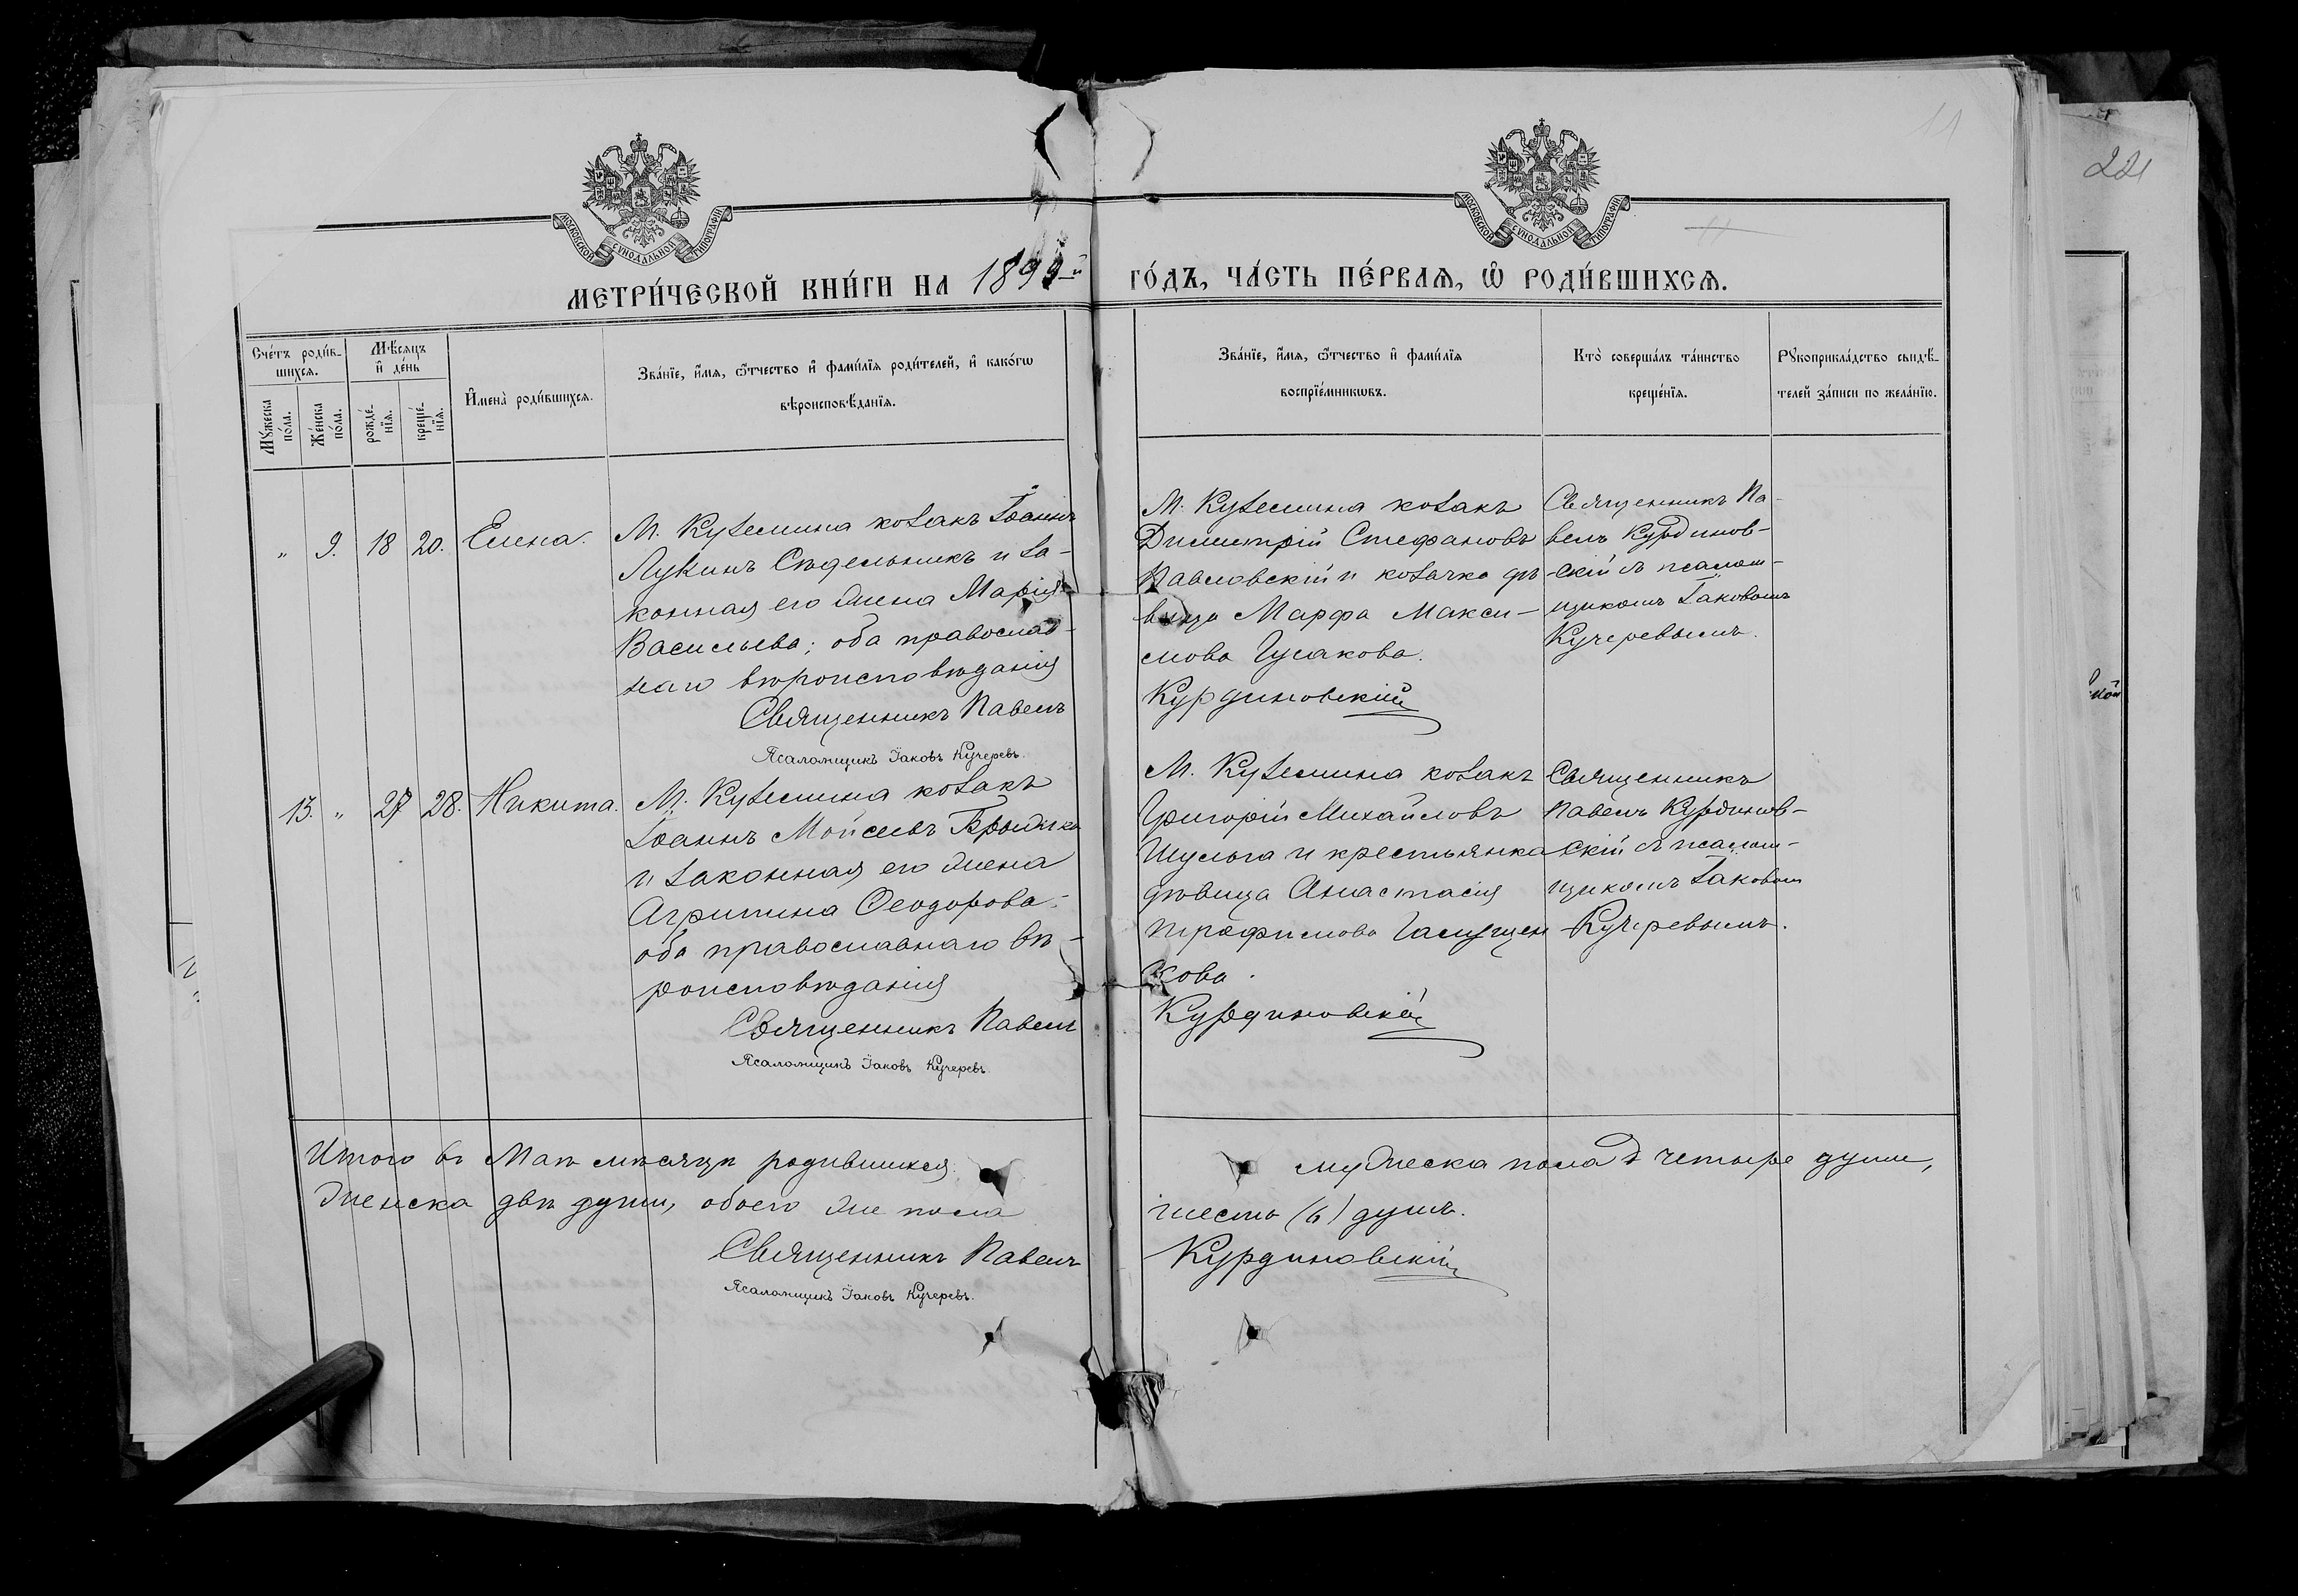 11
221
МОСКОВСКОЙ СУНОДАЛЬНОЙ ТИПОГРАФІИ
МОСКОВСКОЙ СУНОДАЛЬНОЙ ТИПОГРАФІИ
МЕТРИ́ЧЕСКОЙ КНИ́ГИ НА 1899й
ГО́ДЪ, ЧА́СТЬ ПЕ́РВАѦ, Ѽ РОДИ́ВШИХСѦ.
Сче́тъ роди́в-
шихсѧ.
Му́жеска
по́ла.
Же́нска
по́ла.
Мѣ́сѧцъ
и҆ де́нь
рожде́-
нїѧ.
креще́-
нїѧ.
И҆мена̀ роди́вшихсѧ.
Зва́нїе, и҆́мѧ, ѻ҆́тчество и҆ фами́лїѧ роди́телей, и҆ како́гѡ
вѣроисповѣ́данїѧ.
Зва́нїе, и҆́мѧ, ѻ҆́тчество и҆ фами́лїѧ
воспрїе́мникѡвъ.
Кто̀ соверша́лъ та́инство
креще́нїѧ.
Рꙋкоприкла́дство свидѣ́-
телей за́писи по жела́нїю.
„ 9. 18 20. Елена.
М. Куземина козакъ Іоаннъ
Лукинъ Сѣдельникъ и за-
конная его жена Марія
Васильева; оба православ-
наго вѣроисповѣданія
Священникъ Павелъ
Псаломщикъ Іаковъ Кучеревъ.
М. Куземина козакъ
Димитрій Стефановъ
Павловскій и козачка дѣ-
вица Марфа Макси-
мова Гусакова.
Курдиновскій
Священникъ Па-
велъ Курдинов-
скій съ псалом-
щикомъ Іаковомъ
Кучеревымъ.
13. „ 27 28. Никита.
М. Куземина козакъ
Іоаннъ Мойсеевъ
и законная его жена
Агрипина Ѳеодорова:
оба православнаго вѣ-
роисповѣданія
Священникъ Павелъ
Псаломщикъ Іаковъ Кучеревъ.
М. Куземина козакъ
Григорій Михайловъ
Шульга и крестьянка
дѣвица Анастасія
Трофимова
кова.
Курдиновскій
Священникъ
Павелъ Курдинов-
скій съ псалом-
щикомъ Іаковом
Кучеревымъ.
Итого въ Маѣ мѣсяцѣ родившихся: мужеска пола 4 четыре души,
женска двѣ души, обоего же пола шесть (6) душъ.
Священникъ Павелъ Курдиновскій
Псаломщикъ Іаковъ Кучеревъ.